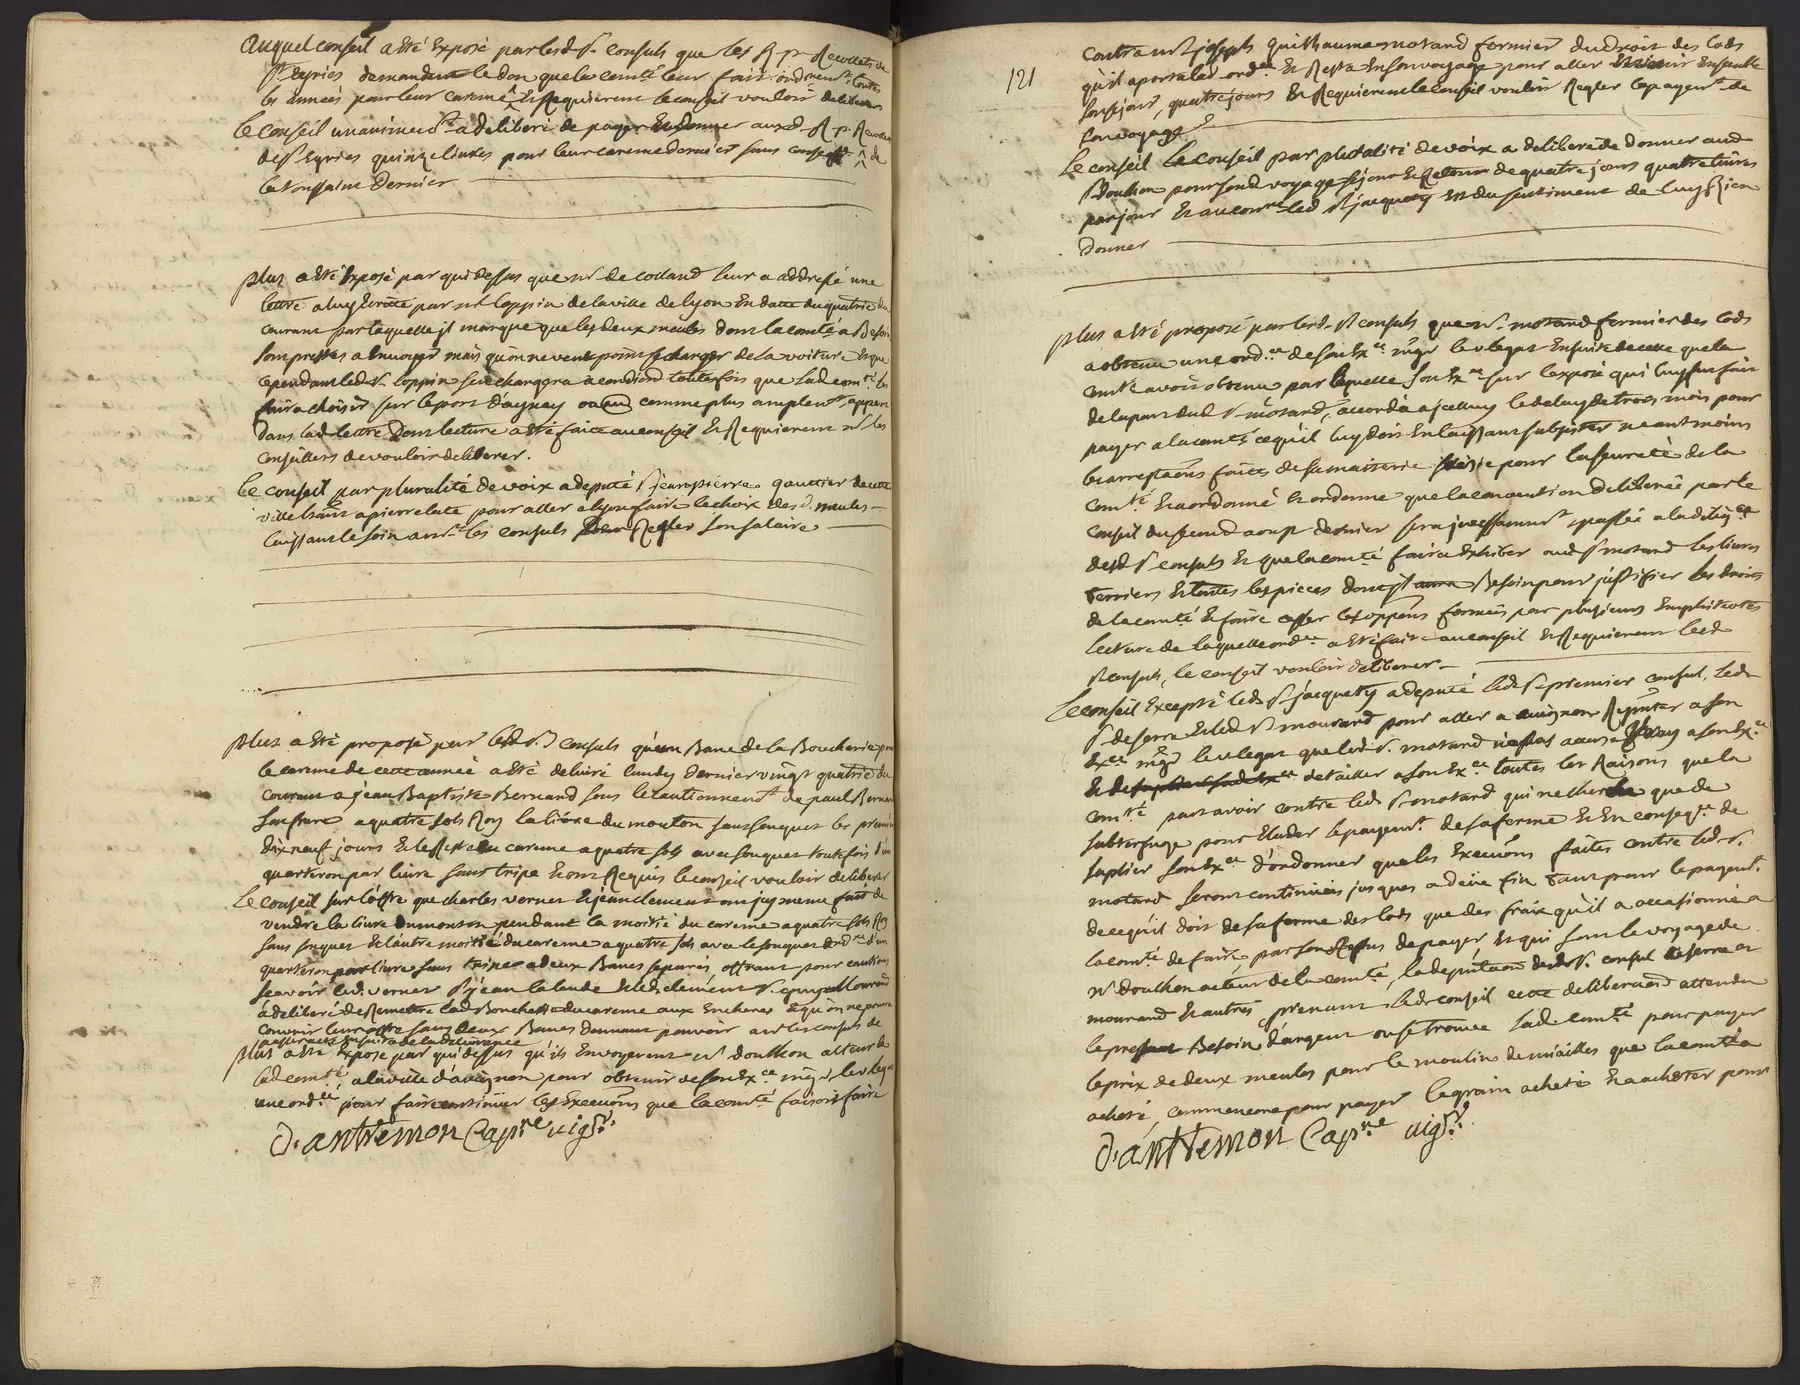 Auquel conseil a eté exposé par lesd. Srs. consuls que les R. p. Recollets de
St. Eyries demandent le don que la comté leur fait ordnement toutes
les années pour leur careme Et Requierent le conseil vouloir deliberer
Le conseil unanimemt. a deliberé de payer Et donner auxd. R. p. Recollets
de St. Eyries quinze livres pour leur careme dernier sans conseqce de
la toussaint dernier
plus a eté Exposé par qui dessus que mr. de colland leur a addressé une
lettre a luy Ecritte par mr. loppin de la ville de lyon En datte du quatrie du
courant par laquelle jl marque que les deux meules dont la comté a Besoin
sont prettes a Envoyer mais qu'on ne veut point se charger de la voiture Et que
cependant led. Sr. loppin s'en chargera a condiond toutefois que lad. comté les
faira choisir sur le port d'aynay comme plus amplemt. appert
dans lad. lettre Dont lecture a eté faitte au conseil Et Requierent mrs. les
conseillers de vouloir deliberer.
Le conseil par pluralité de voix a deputé Sr. jean pierre gauttier de cette
ville a pierrelate pour aller a lyon faire le choix des d. meules
laissant le soin a mrs. les consuls pour Regler son salaire
plus a eté proposé par lesd. Srs. consuls qu'un Banc de la Boucherie pour
le careme de cette année a eté delivré lundy dernier vingt quatrie du
courant a jean Baptiste Bernard sous le cautionnemt. de paul Bernard
son frere a quatre sols Roy la livre du mouton sans souquet les premiers
dix neuf jours Et le Reste du careme a quatre sols avec souquet toutefois d'un
quarteron par livre sans tripe Et ont Requis le conseil vouloir deliberer
Le conseil sur l'offre que charles vernet Et jean clement ont icy meme fait de
vendre la livre du mouton pendant la moitié du careme a quatre sols Roy
sans souquet Et l'autre moitié du careme a quatre sols avec le souquet ordre d'un
quarteron par livre sans tripe a deux Bancs separés, offrant pour cautions
scavoir led. vernet Sr. jean lalande Et led. clement Sr. Mourard
a deliberé de Remettre lad. Boucherie du careme aux Encheres Et qu'on ne pourra
couvrir leur offre sans deux Bancs Donnant pouvoir a mrs. les consuls de
de la delivrance
plus a eté Exposé par qui dessus qu'ils Envoyerent mr. doulhon acteur de
lad. comté, a la ville d'avignon pour obtenir de son Exce. mgr. le vlegat
une ordce. pour faire continuer les Execuons que la comté faisoit faire
D. antremon Capne. vigr.
121
contre mr. joseph guilhaume motard fermier du droit des lods
qu'il aporta lad. ordce. Et Resta En son voyage pour aller Et venir Ensemble
son sejour, quatre jours Et Requierent le conseil vouloir Regler le payemt. de
son voyage
Le conseil Le conseil par pluralité de voix a deliberé de donner aud.
Sr. Doulhon pour sond. voyage sejour Et Retour de quatre jours quatre livres
par jour Et au contrre. led. Sr. jacquety Est du sentiment de luy Rien
donner
plus a eté proposé par lesd. Srs. consuls que mr. motard fermier des lods
a obtenu une ordce. de son Exce. mgr. le vlegat Ensuitte de celle que la
comté avoit obtenu par laquelle son Exce. sur l'exposé qui luy fut fait
de la part dud. Sr. motard, accorda a jcelluy le delay de trois mois pour
payer a la comté ce qu'il luy doit En laissant subsister neantmoins
les arrestaons faites de sa maiterie saisie pour la seureté de la
comté Et a ordonné Et ordonne que la deliberée par le
conseil du second aoust dernier sera jncessammt. passée a la dilige.
desd. Srs. consuls Et que la comté faira Exhiber aud. Sr. motard les livres
Terriers Et toutes les pieces dont jl aura Besoin pour justifier les droits
de la comté Et faire cesser les oppons formées par plusieurs Emphiteotes
lecture de laquelle ordce. a eté faite au conseil Et Requierent lesd.
Srs. consuls, le conseil vouloir deliberer
Le conseil Excepté led. Sr. jacquety a deputé led. Sr. premier consul, led.
Sr. de serre Et led. Sr. mourard pour aller a avignon Reprnter a son
Exce. mgr. le vlegat que led. Sr. motard n'a pas accusé vray a son Exce.
Et de detailler a son Exce. toutes les Raisons que la
comté peut avoir contre led. Sr. motard qui ne cherche que de
subterfuge pour Eluder le payemt. de sa ferme Et En conseqce. de
suplier son Exce. d'ordonner que les Execuons faites contre led. Sr.
motard seront continuées jusques a deüe fin Tant pour le payemt.
de ce qu'il doit de sa ferme des lods que des fraix qu'il a occasionné a
la comté de faire par son Refus de payer Et qui sont le voyage de
mr. doulhon acteur de la comté, la deputaon desd. Srs. consul de serre Et
mourard Et autres, prenant led. conseil cette deliberaond attendu
le pressant Besoin d'argent ou se trouve lad. comté pour payer
le prix de deux meules pour le moulin de miailles que la comté a
acheté, comme encore pour payer le grain acheté Et a acheter pour
D. antremon Capne. vigr.